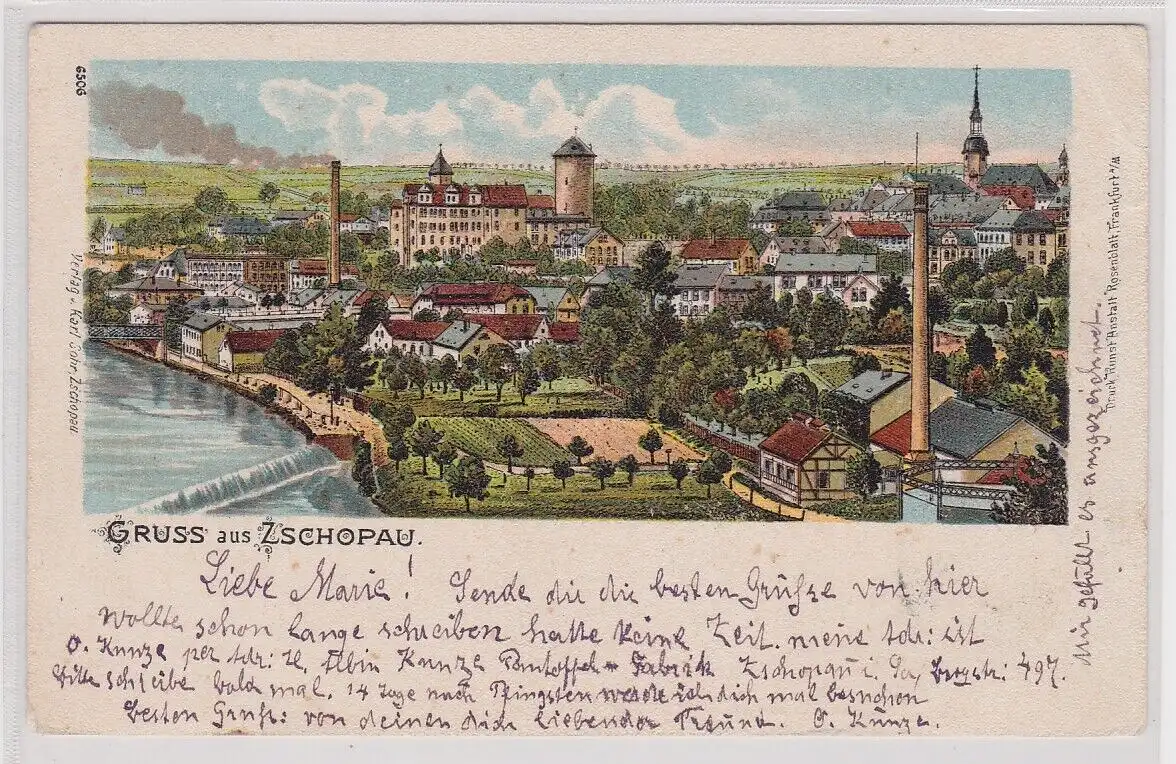 6506
Verlag v. Karl Jahr, Zschopau.
Druck Kunst-Anstalt Rosenblatt, Frankfurt a/M.
GRUSS aus ZSCHOPAU.
Liebe Marie! Sende dir die besten Grüsse von hier
wollte schon lange schreiben hatte keine Zeit. meine Adr: ist
O. Kunze per Adr: H. Albin Kunze Pantoffel-Fabrik Zschopau i. Sa, Bergstr: 497.
Bitte schreibe bald mal. 14 Tage nach Pfingsten werde ich dich mal besuchen
besten Gruß: von deinen dich liebender Freund. O. Kunze.
Mir gefällt es ausgezeichnet.